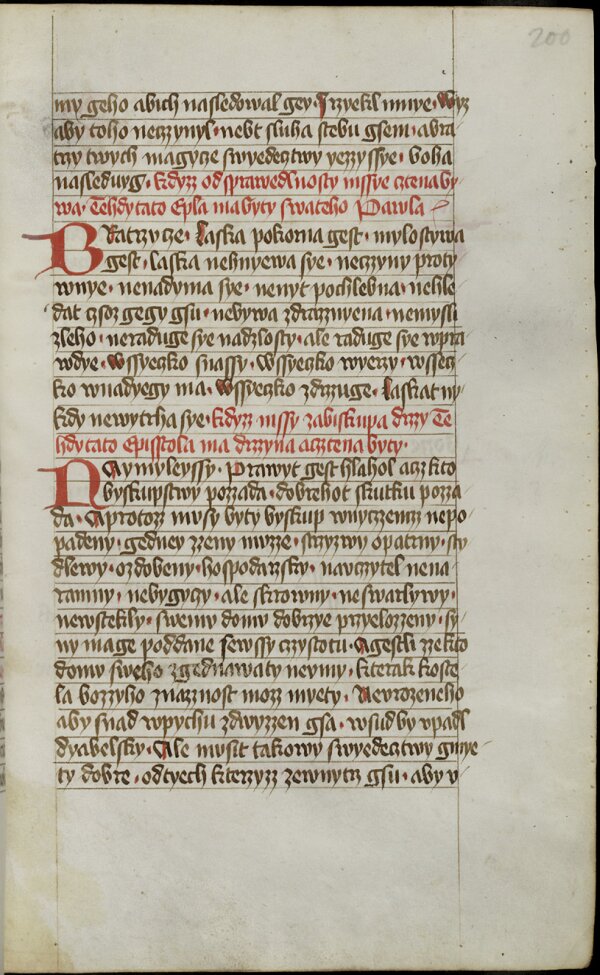 200
my geho abich nasledowal gey· I rzyekl mnye· Wyz
aby toho neczynyl· nebt sluha stebu gsem· abra
trzy twych magycze swyedecztwy yezyssye· boha
nasleduyg· kdyzz odsprawedlnosty mssye cztena by
wa· Tehdy tato Epla ma byty swateho Pawla
BRatrzycze· Laska pokorna gest· mylostywa
gest· laska nehnyewa sye· neczyny proty
wnye· nenadyma sye· nenyt pochlebna· nehle
dat czoz gegy gsu· nebywa zdraznyena· nemysli
zleho· neraduge sye nadzlosty· ale raduge sye wpra
wdye· Wssyeczko snassy· Wssyeczko wyerzy· wssecz
ko wnadyegy ma· Wssyeczko zdrzuge· Laskat ny
kdy newytrha sye· kdyzz mssy zabiskupa drzy Te
hdy tato Episstola ma drzyna acztena byty·
NAymyleyssy· Prawyt gest hlahol acz kto
byskupstwy pozzada· dobrehot skutku pozza
da· Aprotozz musy byty byskup wnyczemz nepo
padeny· gedney zzeny muzze· strzyzwy opatrny· sty
dlewy· ozdobeny· hospodarzsky· nauczytel nena
ramny· nebygyczy· ale skrowny· neswarlywy·
newstekly· swemu domu dobrzye przyelozzeny· sy
ny mage poddane sewssy czystotu· Agestli zzekto
domu sweho zgednawaty neumy· kterak koste
la bozzyho znaznost mozz myety· Newrozeneho
aby snad wpychu zdwyzzen gsa· wsud by upadl
dyabelsky· Ale musit takowy swyedecztwy gmye
ty dobre· odtyech kterzyzz zewnytrz gsu· aby u